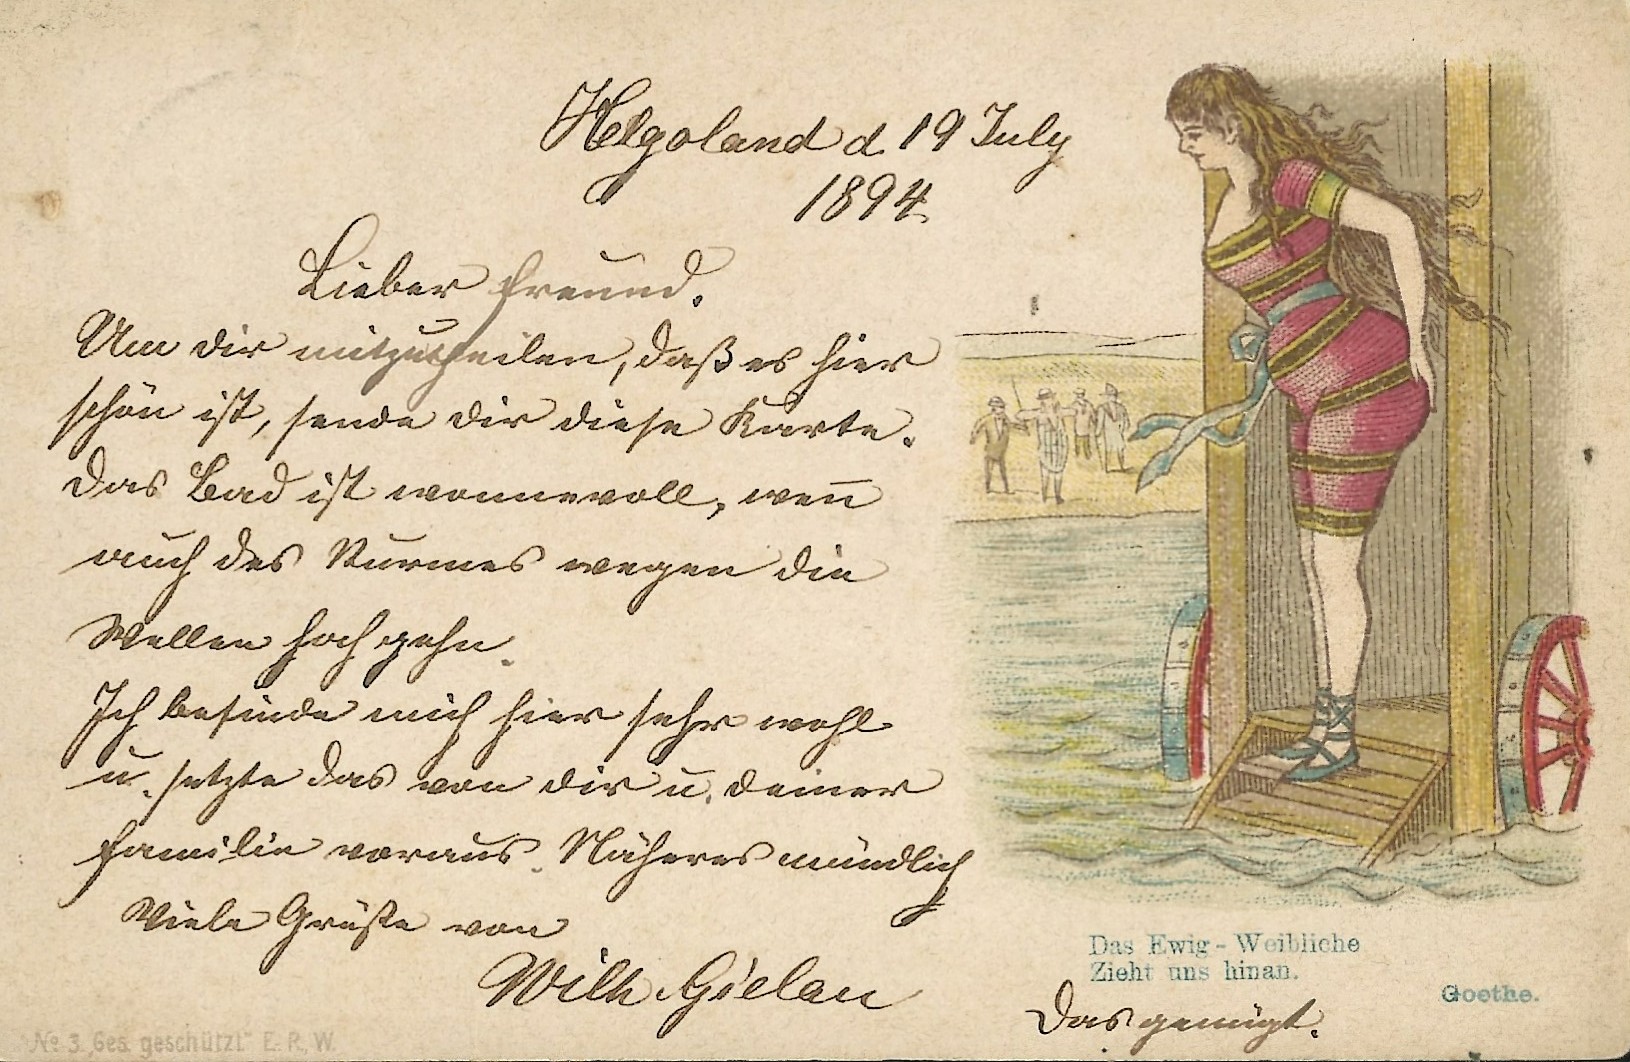 Helgoland d. 19 July
1894.
Lieber Freund.
Um dir mitzutheilen, daß es hier
schön ist, sende dir diese Karte.
Das Bad ist wonnevoll, wen̄
auch des Sturmes wegen die
Wellen hoch gehn.
Ich befinde mich hier sehr wohl
u. setzte das von dir u. deiner
Familie voraus. Näheres mündlich
Viele Grüße von
Wilh. Gielen
Das Ewig-Weibliche
Zieht uns hinan.
Goethe.
Das genügt.
No 3 „Ges. geschützt“ E. R. W.